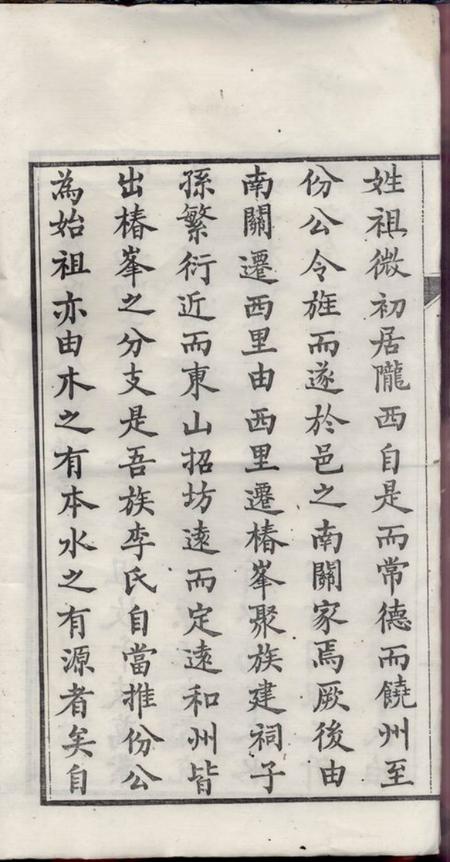 姓祖微初居隴西自是而常德而饒州至
份公令旌而遂於邑之南關家焉厥後由
南關遷西里由西里遷椿峯聚族建祠子
孫繁衍近而東山招坊遠而定遠和州皆
出椿峯之分支是吾族李氏自當推份公
為始祖亦由木之有本水之有源者矣自